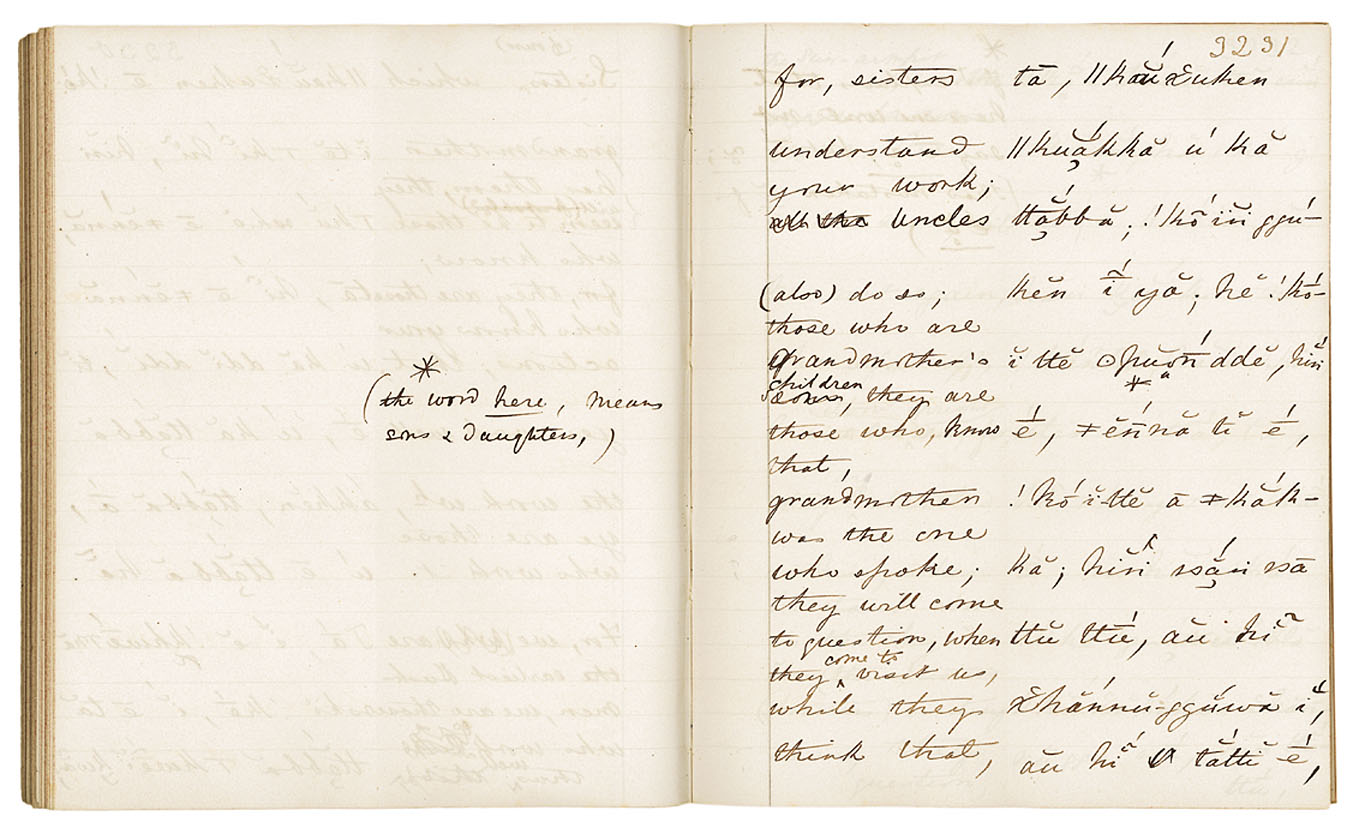 *
(the word here, means
sons & daughters,)
3231
for, sisters tā, ||kaŭẍuken
understand ||kuằkkă ú kă
your work;
Uncles ttằbbă; !kō̆ïṅ ggú-
(also) do so; kĕn ī́ yă; hĕ !kō-
those who are
grandmother's ĭ ttĕ ʘpuōṅ ddĕ, hiṅ
children, they are *
those who, know ḗ, ≠ĕṅnă tĭ ḗ,
that,
grandmother !kō̆ ĭ-ttĕ ā ≠kăk-
was the one
who spoke; kă; hiṅ ssằṅ ssā
they will come
to question, when ttŭ ttú, aŭ hĭ̃
they come to visit us,
while they ẍhánnŭ-ggúwă ĭ́,
think that, aŭ hĭ̃ tắttĭ ḗ,